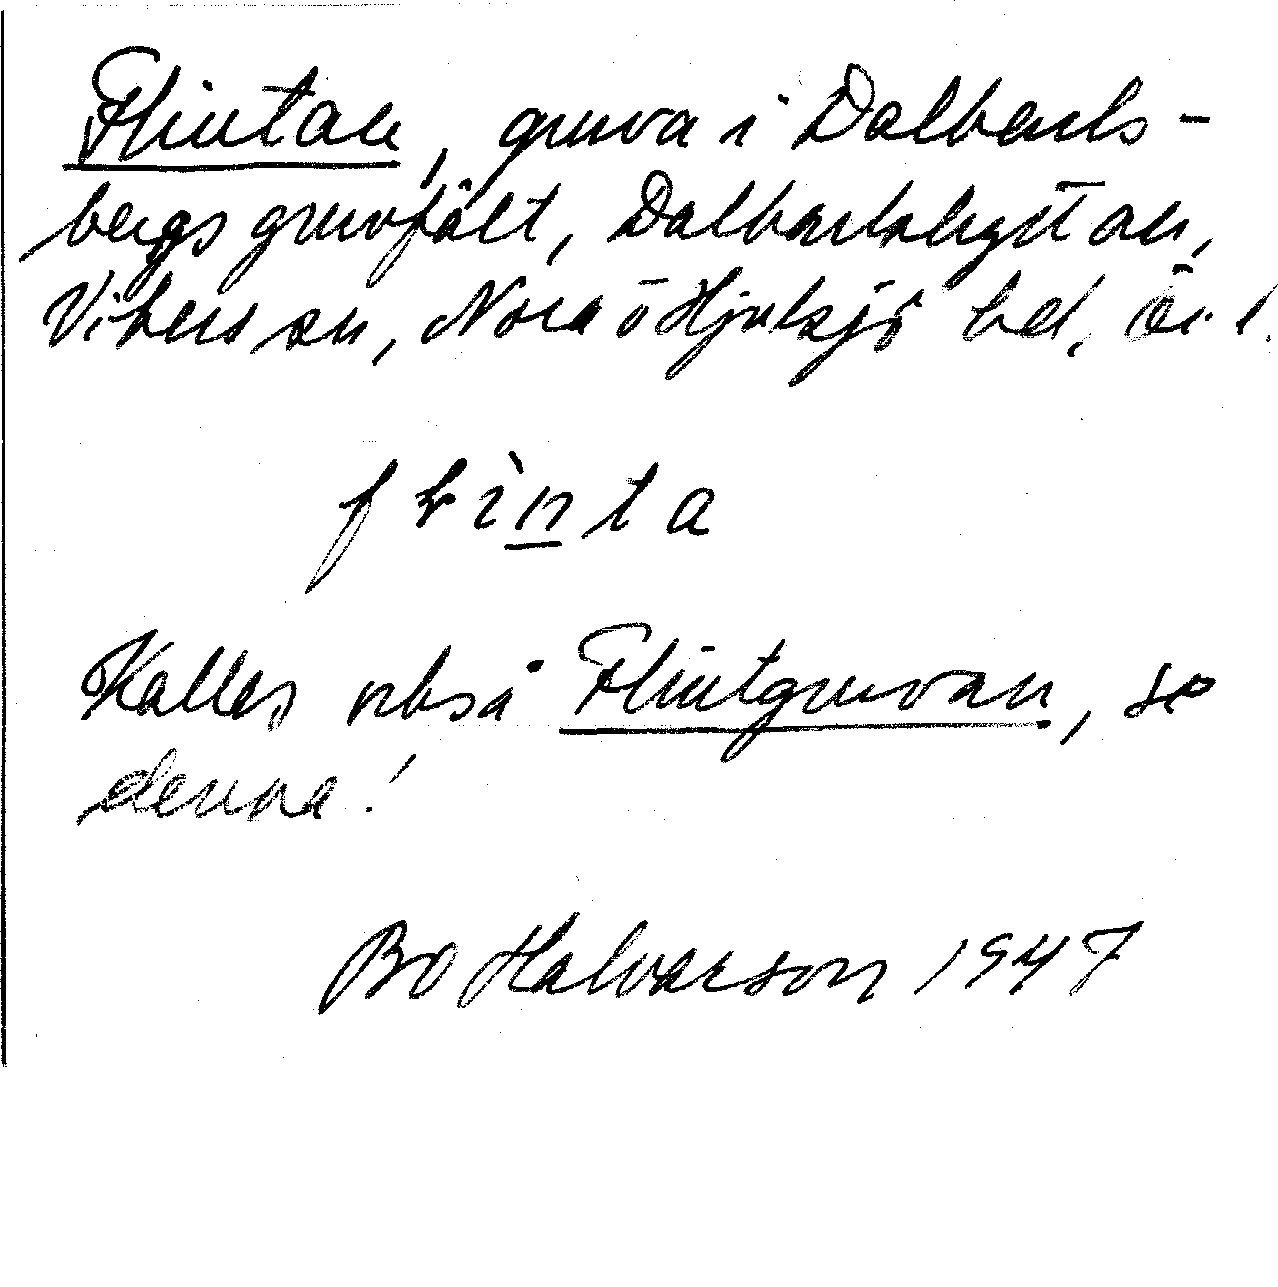 Flintan, gruva i Dalkarls-
bergs gruvfält, Dalkarlshyttan,
Vikers sn, Nora o Hjulsjö bd, Ör. l.
flìnta
Kallas också Flintgruvan, se
denna!
Bo Halvarson 1947